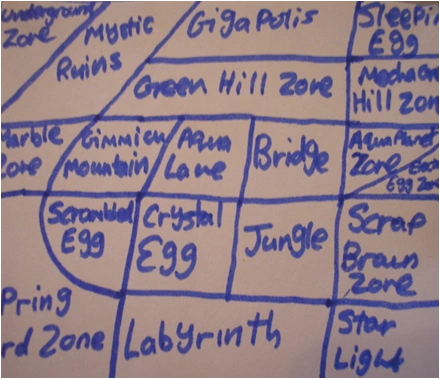 Underground
Zone
Mystic
Ruins
Gigapolis
Sleepin
Egg
Green Hill Zone
Mecha Green
Hill Zon
Marble
Zone
Gimmick
Mountain
Aqua
Lake
Bridge
Aqua Planet
Zone
Egg Zone
Scrambled
Egg
Crystal
Egg
Jungle
Scrap
Brain
Zone
pring
rd Zone
Labyrinth
Star
Light